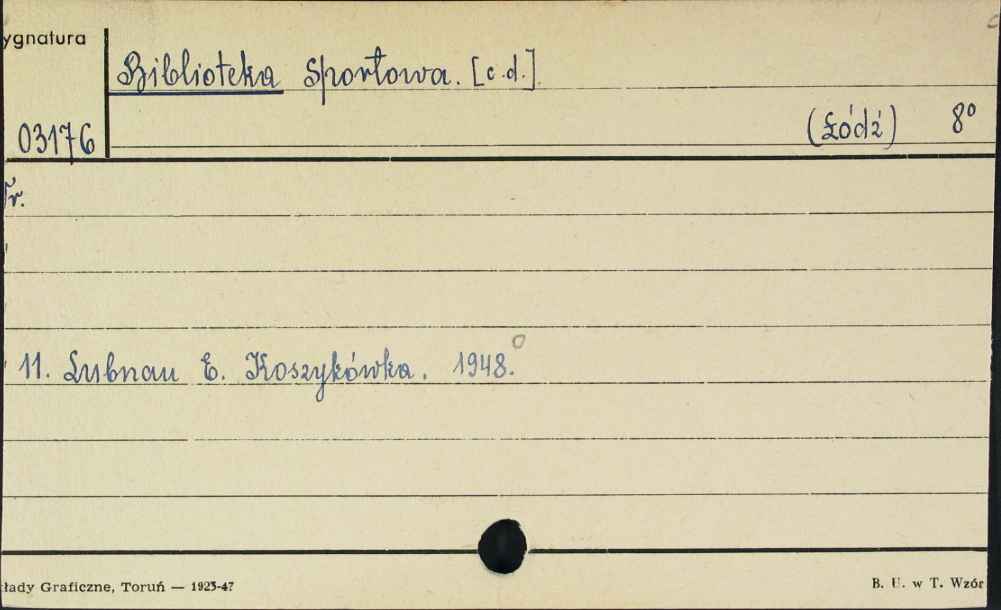 ygnatura
Biblioteka Sportowa. [c.d.].
03176
(Łódź) 8°
Nr.
11. Lubnau E. Koszykówka. 1948.
kłady Graficzne, Toruń — 1923-47
B. U. w T. Wzór